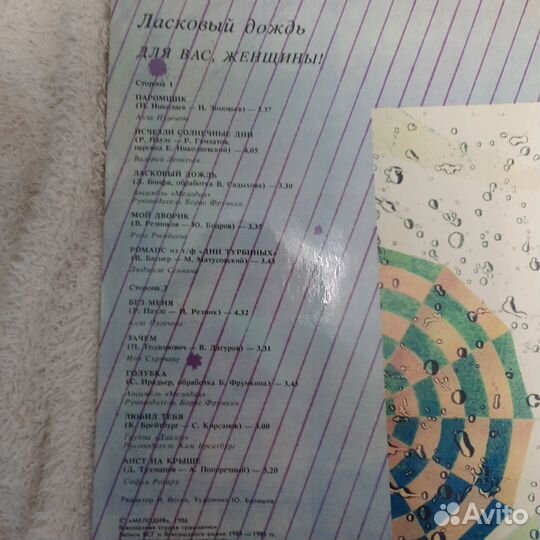 Ласковый дождь
ДЛЯ ВАС, ЖЕНЩИНЫ!
Сторона 1
ПАРОМЩИК
(И. Николаев — Н. Зиновьев) — 3.37
Алла Пугачева
ИСЧЕЗЛИ СОЛНЕЧНЫЕ ДНИ
(Р. Паулс — Р. Гамзатов,
перевод Е. Николаевской) — 4.05
Валерий Леонтьев
ЛАСКОВЫЙ ДОЖДЬ
(Л. Бонфа, обработка В. Садыхова) — 3.30
Ансамбль «Мелодия»
Руководитель Борис Фрумкин
МОЙ ДВОРИК
(В. Резников — Ю. Бодров) — 3.35
Роза Рымбаева
РОМАНС из т/ф «ДНИ ТУРБИНЫХ»
(В. Баснер — М. Матусовский) — 3.43
Людмила Сенчина
Сторона 2
БЕЗ МЕНЯ
(Р. Паулс — И. Резник) — 4.32
Алла Пугачева
ЗАЧЕМ
(П. Теодорович — В. Дагуров) — 3.31
Ион Суручану
ГОЛУБКА
(С. Ирадьер, обработка Б. Фрумкина) — 3.43
Ансамбль «Мелодия»
Руководитель Борис Фрумкин
ЛЮБИЛ ТЕБЯ
(К. Брейтбург — С. Кирсанов) — 3.00
Группа «Диалог»
Руководитель Ким Брейтбург
АИСТ НА КРЫШЕ
(Д. Тухманов — А. Поперечный) — 3.20
София Ротару
Редактор И. Йотко. Художник Ю. Балашов
«МЕЛОДИЯ», 1986
Всесоюзная студия грамзаписи
Записи ВСГ и Всесоюзного радио 1983—1985 гг.
Avito